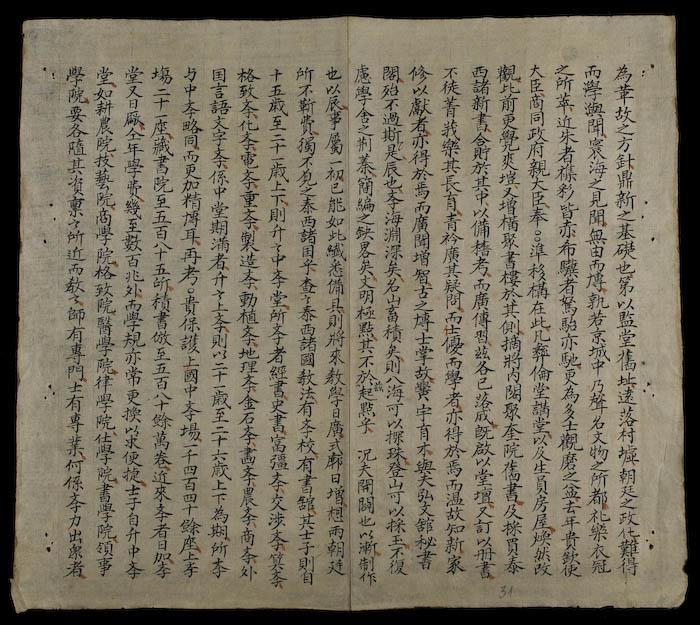 為革故之方針鼎新之基礎也第以監堂舊址遠落村墟朝廷之政化難得
而學輿聞寰海之見聞無由而博孰若京城中乃聲名文物之所都礼樂衣冠
之所萃近朱者襟彩皆赤希驥者駑駘亦馳更為多士觀磨之益去年貴欽使
大臣商同政府親大臣奉〇準杉構在此凡彝倫堂講堂以及生員房屋煥然改
觀比前更覺爽塏又增構聚書樓於其側摘將內閣聚奎院舊書及採買泰
西諸新書合貯於其中以備稽考而廣傳習茲各已落成既啟以堂壇又訂以册書
不徒菁莪樂其長育青衿廣其疑問而士優而學者亦得於焉而温故知新家
修以獻者亦得於焉而廣聞增智古之博士掌故黌宇育才與夫弘文舘秘書
閣殆不過斯是辰也孛海淵深矣名山畜積矣則入海可以探珠登山可以採玉不復
慮學舍之荆蓁簡編之缺畧矣文明極點其不於茲起點乎 况天開闢也以漸制作
也以辰事屬一初已能如此纖悉備具則將來教學日廣式廓日增想兩朝廷
所不靳費獨不見之泰西諸国乎查之泰西諸國教法有孛校有書舘其士子則自
十五歲至二十一歲上下則升之中孛堂所孛者經書史書富彊孛交涉孛算孛
格致孛化孛電孛重孛製造孛動植孛地理孛金石孛畵孛農孛商孛外
国言語文字孛係中堂期滿者升之上孛則以二十一歲至二十六歲上下為期所孛
与中孛略同而更加精博耳再考之貴保護上國中孛場一千四百四十餘座上孛
塲二十一座藏書院至五百八十五所積書倣至五百八十餘萬卷近來孛者日加孛
堂又日廠全年學費幾至數百兆外而學規亦常更換以求便捷士子自升中孛
堂如耕農院技藝院商學院格致院醫學院律學院仕學院書學院領事
學院要各隨其資稟之所近而教之師有專門士有專業何係孛力出衆者
31